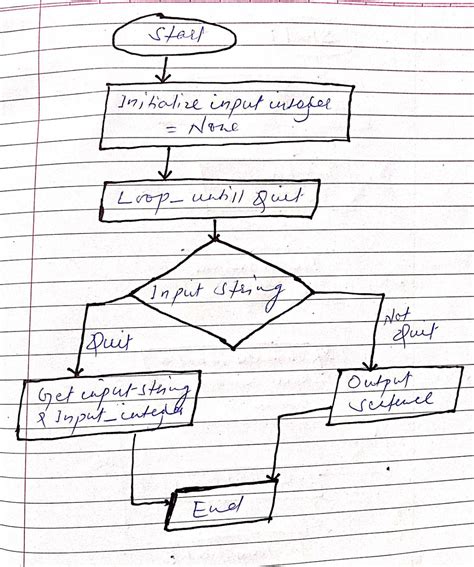 Start
Initialize input integer
= None
Loop_until Quit
Input string
Quit
Not
Quit
Get input string
& Input_integer
Output
sentence
End